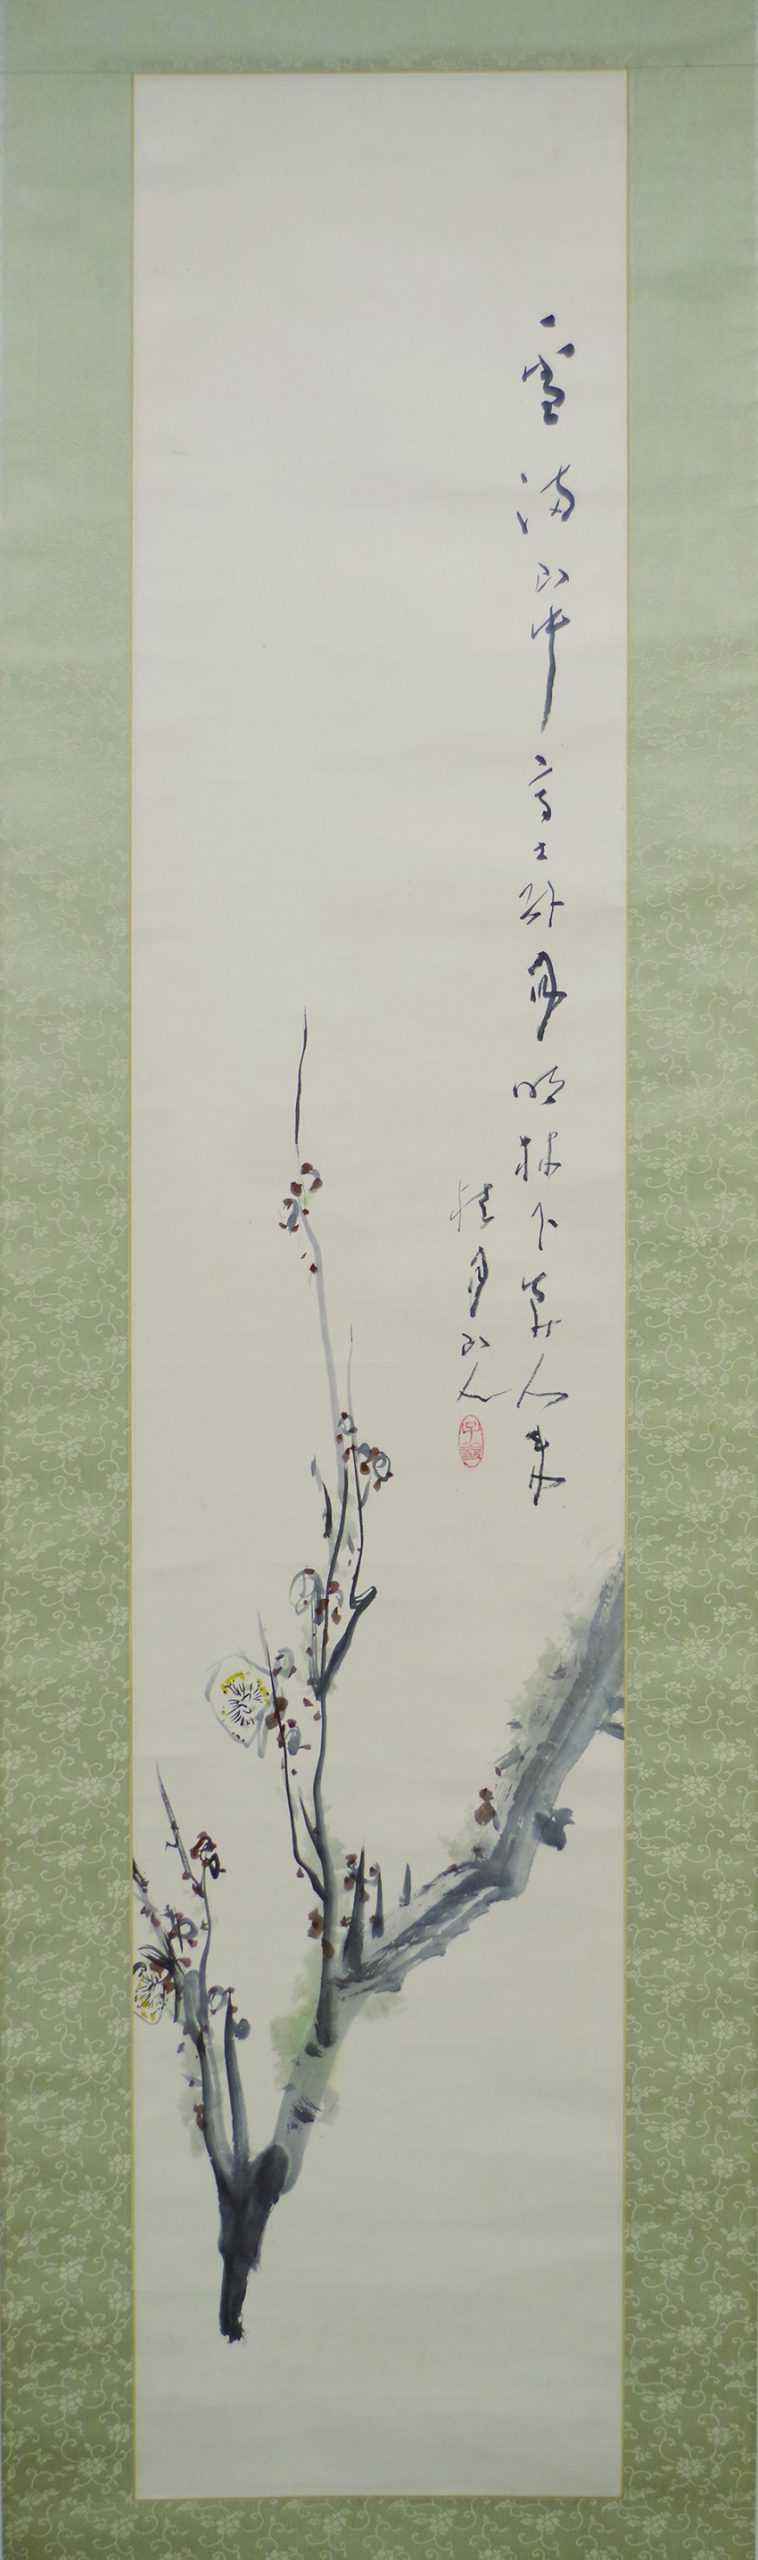 雪満山中高士臥月明林下美人来
桂月山人